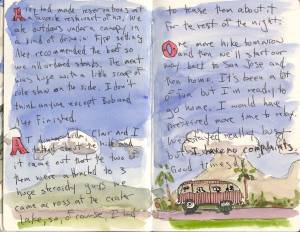 made reservations at
a favorite restaurant of his, we
ate outdoors under a canopy in
a kind of drive in type building
They recommended the beef so
we all ordered steaks. The meat
was huge with a little side of
cole slaw on the side. I don't
think anyone except Bob and
finished.
At dinner Clair and I
talked about the hike and
it came out that the two of
them were attracted to 3
huge steroidy guys we
came across at the crater
lake, so, of course, I had
to tease them about it
for the rest of the night.
One more hike tomorrow
and then we'll start our
way back to San Jose and
then home. It's been a lot
of fun but I'm ready to
go home. I would have
preferred more time to relax,
we
but I have no complaints.
Good times!